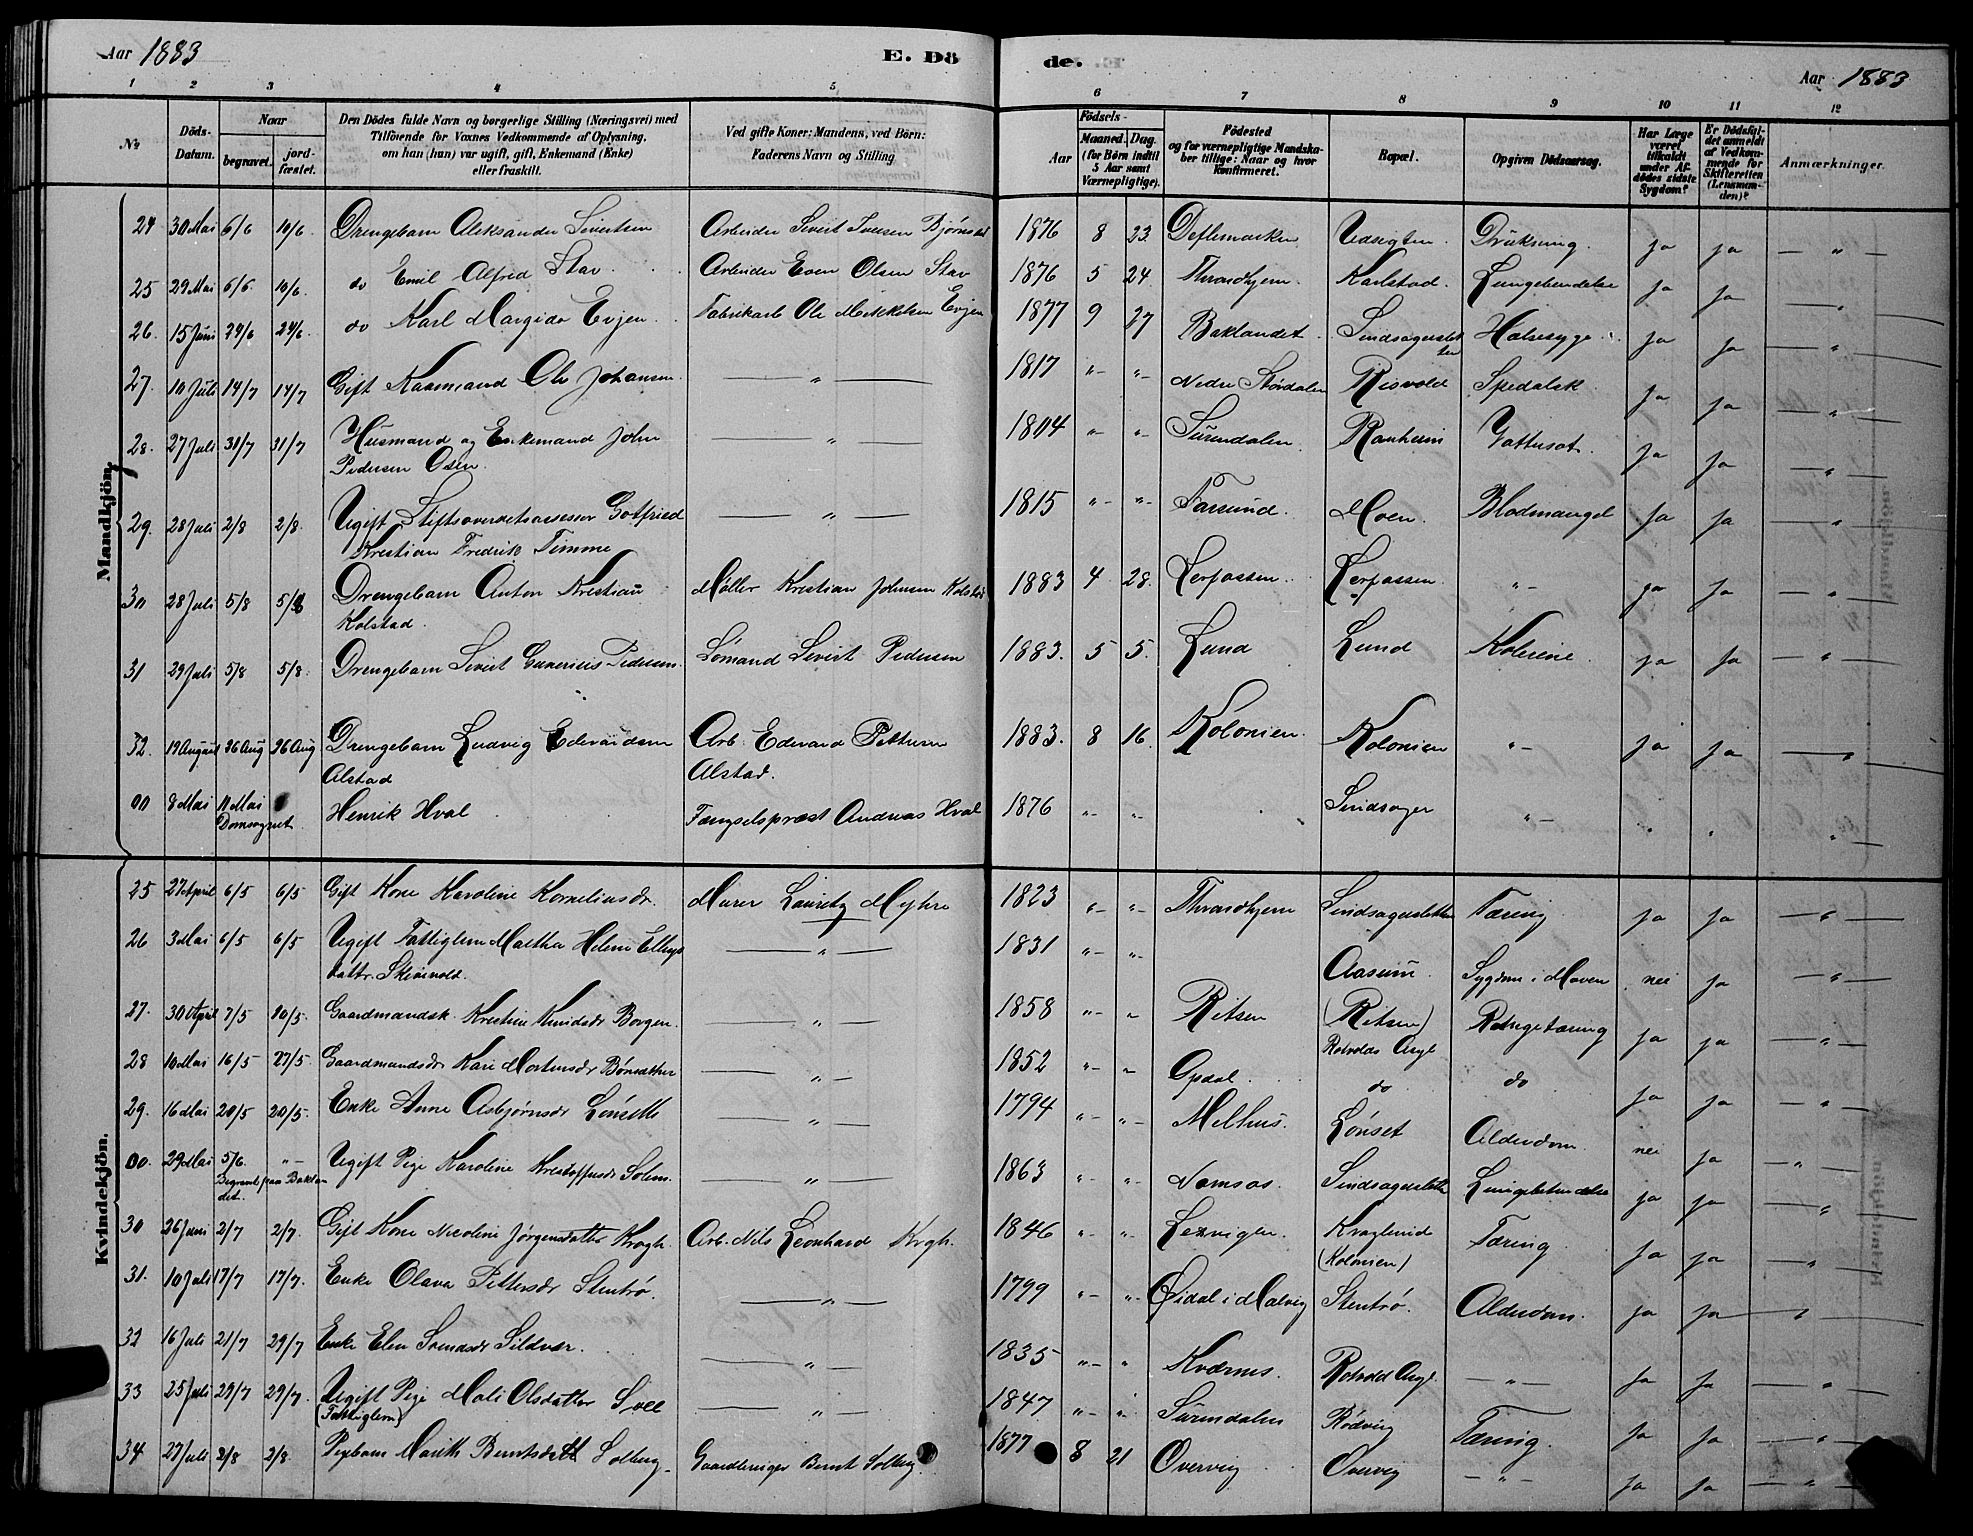 Aar 1883
E. Dö
de.
Aar 1883
1 2 3 4 5 6 7 8 9 10 11 12
No
Döds-Datum.
Naar
begravet.
jordfæstet.
Den Dödes fulde Navn og borgerlige Stilling (Næringsvei) med
Tilföiende for Voxnes Vedkommende af Oplysning,
om han (hun) var ugift, gift, Enkemand (Enke)
eller fraskilt.
Ved gifte Koner: Mandens, ved Börn:
Faderens Navn og Stilling
Födsels-
Aar
Maaned. Dag.
(for Börn indtil
5 Aar samt
Værnepligtige).
Födested
og for værnepligtige Mandskaber tillige: Naar og hvor
Konfirmeret.
Bopæl.
Opgiven Dödsaarsag.
Har Læge
været
tilkaldt
under Afdødes sidste
Sygdom?
Er Dödsfaldet anmeldt
af Vedkommende for
Skifteretten
(Lensmanden)?
Anmærkninger.
Mandkjön.
24 30 Mai 6/6 10/6. Drengebarn Aleksander Sivertsen Arbeider Sivert Iversen Bjørnstad 1876 8 23. Devlemarken Udsigten Drukning. ja ja — " —
25 29 Mai 6/6 10/6. do Emil Alfred Stav. Arbeider Even Olsen Stav 1876 5 24. Throndhjem. Karlstad. Lungebetændelse ja ja — " —
26. 15 Juni 24/6 24/6. do Karl Margido Evjen. Fabrikarb Ole Mikkelsen Evjen 1877 9 27 Baklandet. Sindsagerslet ten Halsesyge ja ja — " —
27. 10 Juli 14/7 14/7 Gift Kaarmand Ole Johansen. — " — 1817 " " Nedre Stördalen Risvold Spedalsk. ja ja — " —
28. 27 Juli 31/7 31/7 Husmand og Enkemand John
Pedersen Osen. — " — 1804 " " Surendalen. Ranheim ja ja — " —
29. 28 Juli 2/8 2/8. Ugift Stiftsoverretsassessor Gotfried
Kristian Fredrik Timme — " — 1815 " " Farsund. Moen. Blodmangel ja ja — " —
30 28 Juli 5/8 5/8 Drengebarn Anton Kristian
Kolstad. Møller Kristian Johnsen Kolstad 1883 4 28. Lerfossen. Lerfossen. " ja ja — " —
31 29 Juli 5/8 5/8. Drengebarn Sivert Gunerius Pedersen. Sømand Sivert Pedersen 1883. 5 5. Lund Lund Kolerine. ja ja — " —
32. 19 August 26 Aug 26 Aug Drengebarn Ludvig Edvardsen
Alstad Arb. Edvard Pettersen
Alstad. 1883. 8 16. Kolonien. Kolonien " — ja ja — " —
00 8 Mai 11 Mai
Domsognet Henrik Hval Fængselspræst Andreas Hval 1876 " " Sindsager " — " " "
Kvindekjön.
25 27 April 6/5 6/5 Gift Kone Karoline Korneliusdr. Murer Lauritz Myhre 1823 " " Throndhjem Sindsagersletten Tæring ja ja — " —
26 3 Mai 6/5 6/5 Ugift Fattiglem Martha Helene Ellings
dattr. Skjervold. — " — 1831 " " Aasum. Sygdom i Maven nei ja — " —
27. 30 April 7/5 10/5. Gaardmandsk. Kristine Knudsdr Borgen. — " — 1858 " " Ritsen (Ritsen)
Rotvolds Asyl ja ja — " —
28 10 Mai 16/5 27/5. Gaardmandsdr Kari Mortensdr — " — 1852 " " Opdal. do do ja ja — " —
29. 16 Mai 20/5 20/5. Enke Anne Asbjørnsdr Lønset — " — 1794 " " Melhus. Lønset Alderdom. nei ja — " —
00. 29 Mai 5/6. " —
Begravet fra Baklan
det. Ugift Pige Karoline Kristoffersdr Solem. — " — 1863 " " Namsos. Sindsagersletten Lungebetændelse ja ja — " —
30 26 Juni 2/7 2/7. Gift Kone Nicoline Jørgensdatter Krogh. Arb. Nils Leonhard Krogh. 1846 " " Lexvigen.
(Kolonien) Tæring. ja ja — " —
31. 10 Juli 17/7 17/7. Enke Olava Pettersdr Stentrø. — " — 1799 " " i Malvig Stentrø. Alderdom. ja ja — " —
32 16 Juli 21/7 29/7 Enke Elen Svendsdr Sildvær. — " — 1835 " " Kværnes. Rotvold Asyl. — " — ja ja — " —
33 25 Juli 29/7 29/7. Ugift Pige Mali Olsdatter Svee
(Fattiglem) — " — 1847 " " Surendalen Rødvig Tæring. ja ja — " —
34 27 Juli 2/8 2/8. Pigebarn Marith Berntsdatt Solberg. Gaardbruger Bernt Solberg. 1877 8 21 Overvig Overvig — " — ja ja — " —